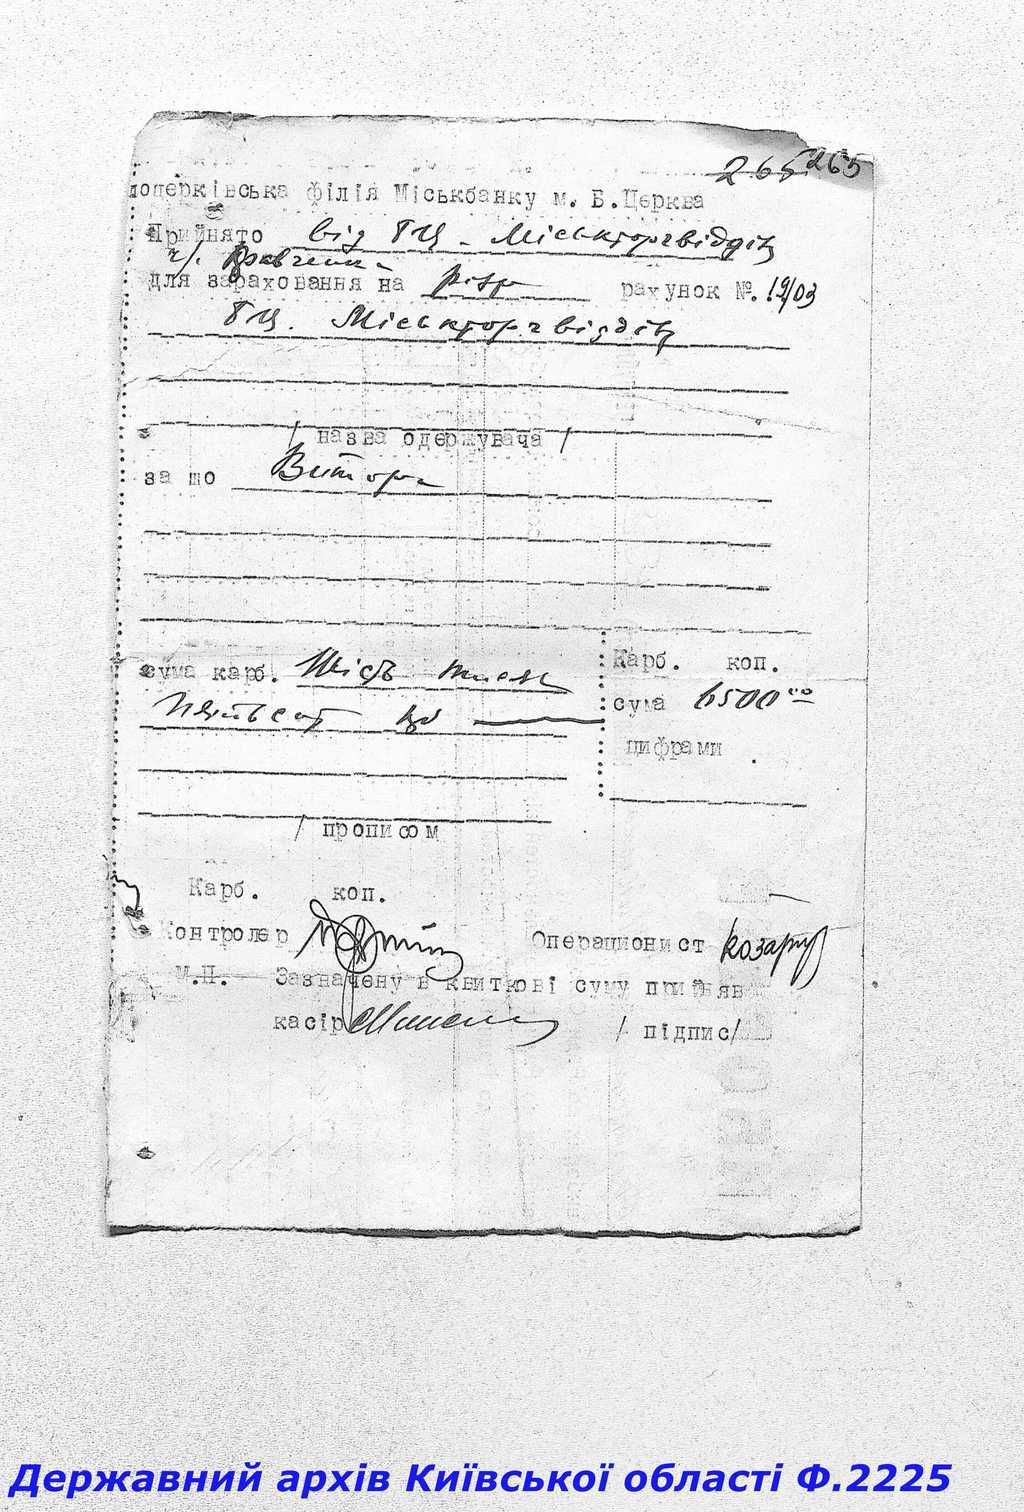 265 265
лоцерківська філія Міськбанку м. Б.Церква
Прийнято від БЦ. Міськторгвідділ
ч/. Кравченка
для зарахования на розр рахунок №. 19/03
БЦ. Міськторгвідділ
/ назва одержувача /
за що Виторг
сума карб. Шість тисяч
Карб. коп.
пятьсот кб
сума 6500 00
цифрами
/ прописом
Карб. коп.
Контролер
Операционист Козаруб
М.П. Зазначену в квиткові суму прийняв
касір / підпис/
Державний архів Київської області Ф.2225